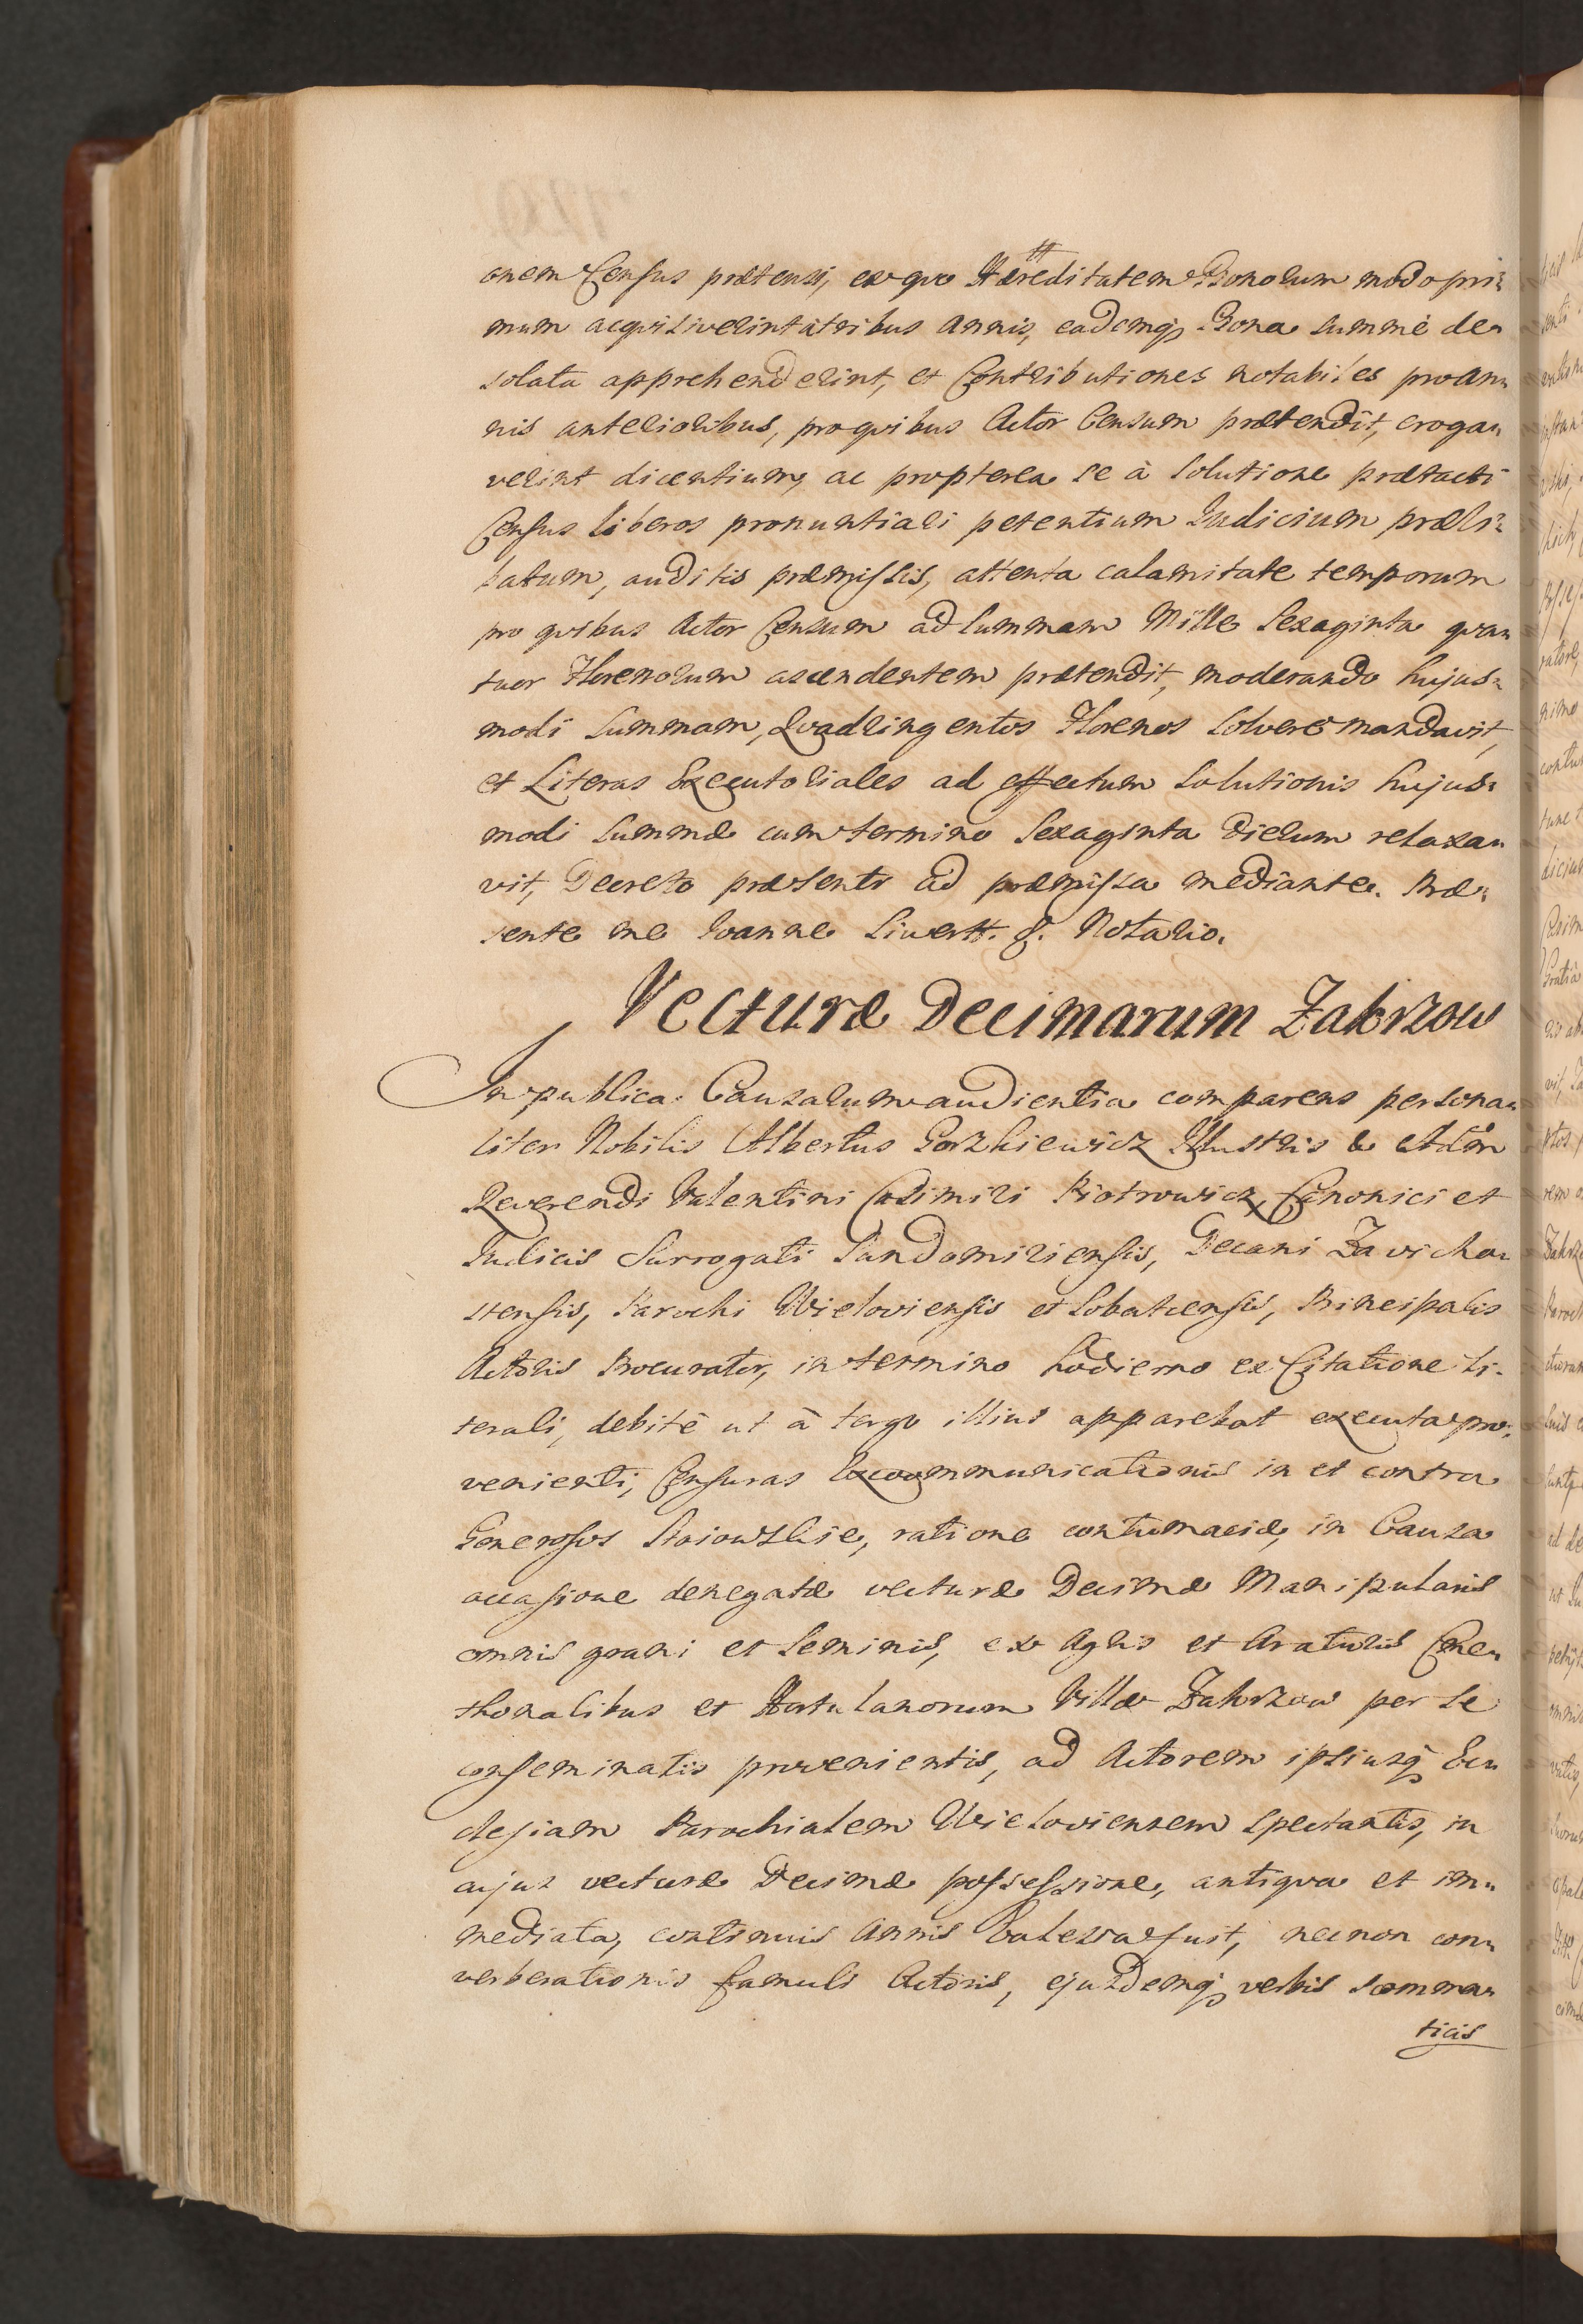 onem Censûs prætensi, ex quo Hæreditatem Bonorum modo pri=
mum acqvisiverint à tribus Annis, eademq; Bona summè de=
solata apprehenderint, et Contributiones notabiles pro An=
nis anterioribus, pro qvibus Actor Censum prætendit, eroga=
verint dicentium, ac propterea se à solutione prætacti
Census liberos pronuntiari petentium Judicium præli=
batum, auditis præmissis, attenta calamitate temporum
pro qvibus Actor Censum ad summam Mille Sexaginta qva=
tuor Florenorum ascendentem prætendit, moderando hujus=
modi summam, Qvadringentos Florenos solvere mandavit,
et Literas Executoriales ad effectum solutionis hujus=
modi summæ cum termino sexaginta dierum relaxa=
vit, Decreto præsenti ad præmissa mediante. Præ=
sente me Joanne Siwertt. J. Notario.
Vecturæ Decimarum Zakrzow
In publica Causarum audientia comparens persona=
liter Nobilis Albertus Gorzkiewicz Illustris & Adm
Reverendi Valentini Casimiri Piotrowicz, Canonici et
Judicis Surrogati Sandomiriensis, Decani Zavicho=
stensis, Parochi Wieloviensis et Sobotcensis, Principalis
Actoris Procurator, in termino hodierno ex Citatione li=
terali, debitè ut à tergo illius apparebat executa pro=
venienti, Censuras Excommunicationis in et contra
Generosos Stoiowskie, ratione contumaciæ, in Causa
occasione denegatæ vecturæ Decimæ Manipularis
omnis grani et seminis, ex Agris et Araturis Cme=
thonalibus et Hortulanorum Villæ Zakrzow per se
conseminatis provenientis, ad Actorem ipsiusq; Ec=
clesiam Parochialem Wieloviensem spectantis, in
cujus vecturæ Decimæ possessione, antiqva et im=
mediata, continuis Annis Ecclesia fuit, necnon con=
verberationis famuli Actoris, ejusdemq; verbis somma=
ticis